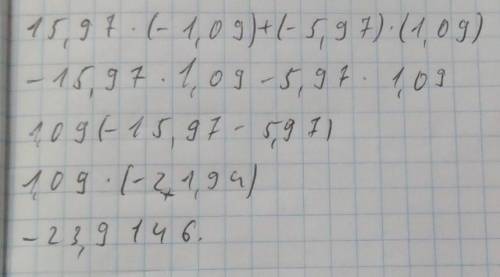 15,97 · (- 1,09) + (- 5,97) · (1,09)
- 15,97 · 1,09 - 5,97 · 1,09
1,09 (- 15,97 - 5,97)
1,09 · (- 21,94)
- 23,9 146.